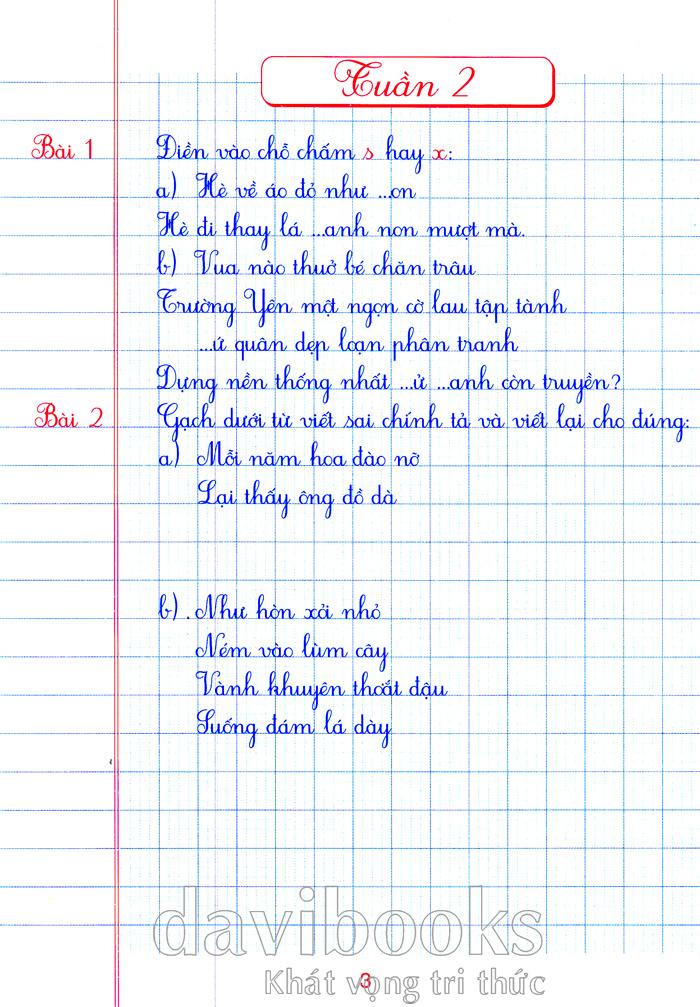 Tuần 2
Bài 1
Điền vào chỗ chấm s hay x:
a) Hè về áo đỏ như ...on
Hè đi thay lá ...anh non mượt mà.
b) Vua nào thuở bé chăn trâu
Trường Yên một ngọn cờ lau tập tành
...ứ quân dẹp loạn phân tranh
Dựng nền thống nhất ...ử ...anh còn truyền?
Bài 2
Gạch dưới từ viết sai chính tả và viết lại cho đúng:
a) Mỗi năm hoa đào nở
Lại thấy ông đồ dà
b). Như hòn xỏi nhỏ
Ném vào lùm cây
Vành khuyên thoắt đậu
Suống đám lá dày
davibooks
Khát vọng tri thức
3